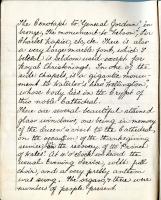 The Cenotaph to "General Gordon", Sir
George, the monument to "Nelson", Sir
Charles Napier, etc. etc. There is also
a very large marble font, which I
believe is seldom used except for
Royal Christenings. In one of the
side chapels, is a gigantic monu-
ment to England's "Duke Wellington",
whose body lies in the crypt of
this noble Cathedral.
There are several beautiful stained
glass windows, one being in memory
of the Queen's visit to the Cathedral,
on the occasion of the thanksgiving
service for the recovery of the Prince
of Wales. At 4 o'clock we heard the
usual Evening Service, with full
choir, and a very pretty anthem
was sung; the organ is fine; were
numbers of people present.